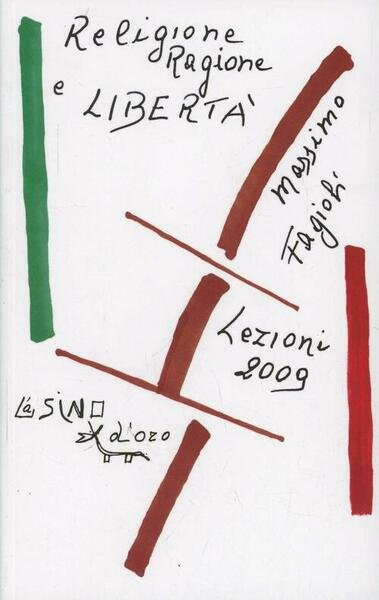 Religione
Ragione
e LIBERTÀ
Massimo
Fagioli
Lezioni
2009
L'aSINO
d'oro